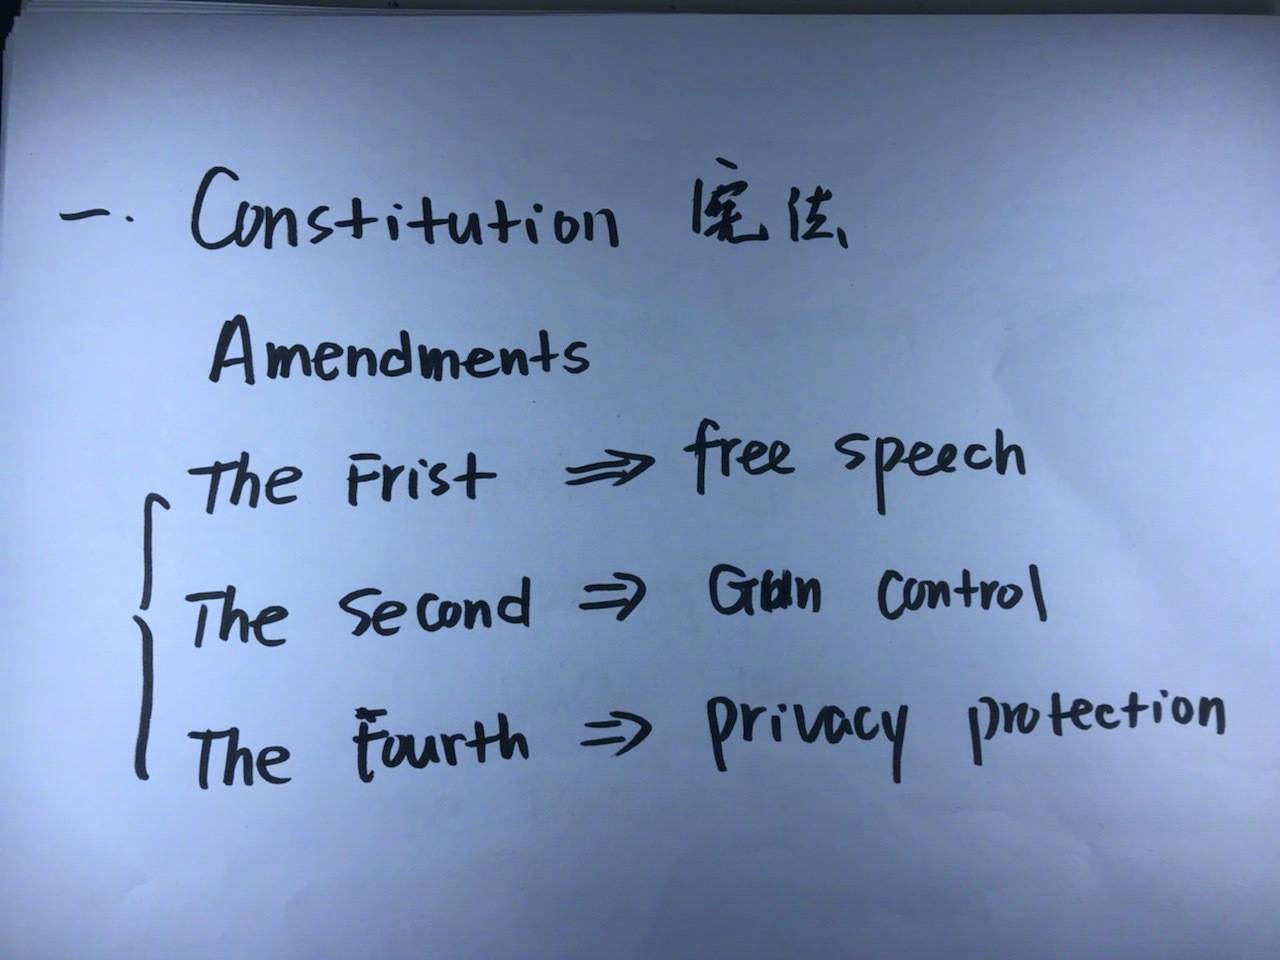 一. Constitution 宪法
Amendments
The Frist ⇒ free speech
The Second ⇒ Gun control
The Fourth ⇒ privacy protection